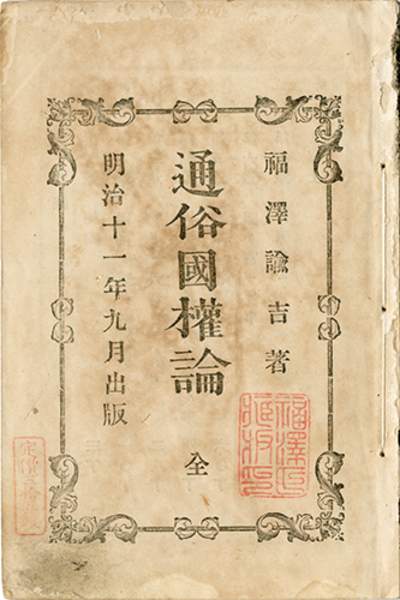 福澤諭吉著
通俗國權論
全
明治十一年九月出版
福澤氏
蔵版印